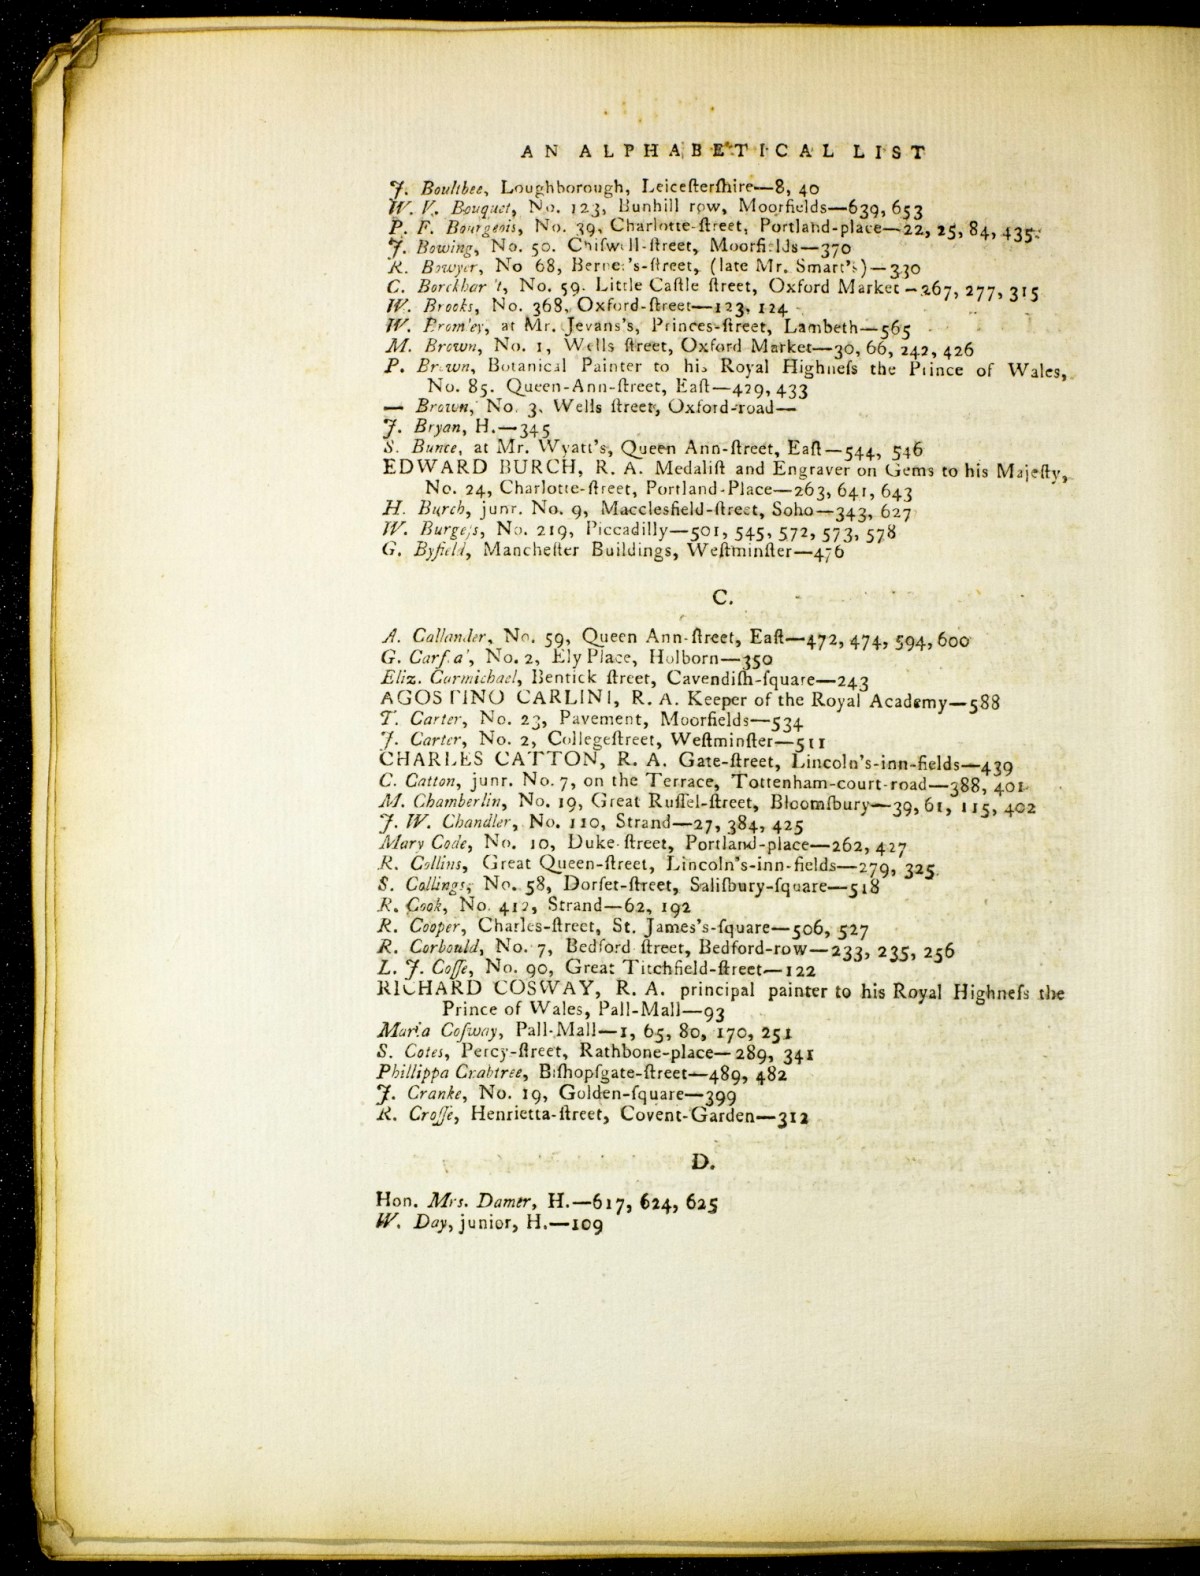 AN ALPHABETICAL LIST
J. Boultbee, Loughborough, Leiceſterſhire—8, 40
W. V. Bouquet, No. 123, Bunhill row, Moorfields—639, 653
P. F. Bourgeois, No. 39, Charlotte-ſtreet, Portland-place—22, 25, 84, 435
J. Bowing, No. 50. Chiſwell-ſtreet, Moorfields—370
R. Bowyer, No 68, Berner's-ſtreet, (late Mr. Smart's)—330
C. Borckhar't, No. 59. Little Caſtle ſtreet, Oxford Market—267, 277, 315
W. Brooks, No. 368, Oxford-ſtreet—123, 124
W. Brom'ey, at Mr. Jevans's, Princes-ſtreet, Lambeth—565
M. Brown, No. 1, Wells ſtreet, Oxford Market—30, 66, 242, 426
P. Brown, Botanical Painter to his Royal Highneſs the Prince of Wales,
No. 85. Queen-Ann-ſtreet, Eaſt—429, 433
— Brown, No. 3, Wells ſtreet, Oxford-road—
J. Bryan, H.—345
S. Bunce, at Mr. Wyatt's, Queen Ann-ſtreet, Eaſt—544, 546
EDWARD BURCH, R. A. Medaliſt and Engraver on Gems to his Majeſty,
No. 24, Charlotte-ſtreet, Portland-Place—263, 641, 643
H. Burch, junr. No. 9, Macclesfield-ſtreet, Soho—343, 627
W. Burgeſs, No. 219, Piccadilly—501, 545, 572, 573, 578
G. Byfield, Mancheſter Buildings, Weſtminſter—476
C.
A. Callander, No. 59, Queen Ann-ſtreet, Eaſt—472, 474, 594, 600
G. No. 2, Ely Place, Holborn—350
Eliz. Carmichael, Bentick ſtreet, Cavendiſh-ſquare—243
AGOSTINO CARLINI, R. A. Keeper of the Royal Academy—588
T. Carter, No. 23, Pavement, Moorfields—534
J. Carter, No. 2, Collegeſtreet, Weſtminſter—511
CHARLES CATTON, R. A. Gate-ſtreet, Lincoln's-inn-fields—439
C. Catton, junr. No. 7, on the Terrace, Tottenham-court-road—388, 401
M. Chamberlin, No. 19, Great Ruſſel-ſtreet, Bloomſbury—39, 61, 115, 402
J. W. Chandler, No. 110, Strand—27, 384, 425
Mary Code, No. 10, Duke-ſtreet, Portland-place—262, 427
R. Collins, Great Queen-ſtreet, Lincoln's-inn-fields—279, 325
S. Collings, No. 58, Dorſet-ſtreet, Saliſbury-ſquare—518
R. Cook, No. 412, Strand—62, 192
R. Cooper, Charles-ſtreet, St. James's-ſquare—506, 527
R. Corbould, No. 7, Bedford ſtreet, Bedford-row—233, 235, 256
L. J. Coſſe, No. 90, Great Titchfield-ſtreet—122
RICHARD COSWAY, R. A. principal painter to his Royal Highneſs the
Prince of Wales, Pall-Mall—93
Maria Coſway, Pall-Mall—1, 65, 80, 170, 251
S. Cotes, Percy-ſtreet, Rathbone-place—289, 341
Phillippa Crabtree, Biſhopſgate-ſtreet—489, 482
J. Cranke, No. 19, Golden-ſquare—399
R. Croſſe, Henrietta-ſtreet, Covent-Garden—312
D.
Hon. Mrs. Damer, H.—617, 624, 625
W. Day, junior, H.—109